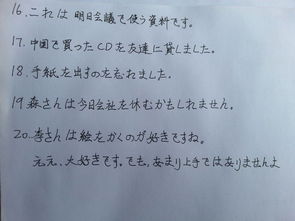 16.これは明日会議で使う資料です。
17.中国で買ったCDを友達に貸しました。
18.手紙を出すのを忘れました。
19森さんは今日会社を休むかもしれません。
20.李さんは絵をかくのが好きですね。
元元、大好きです。でも、あまり上手ではありませんよ